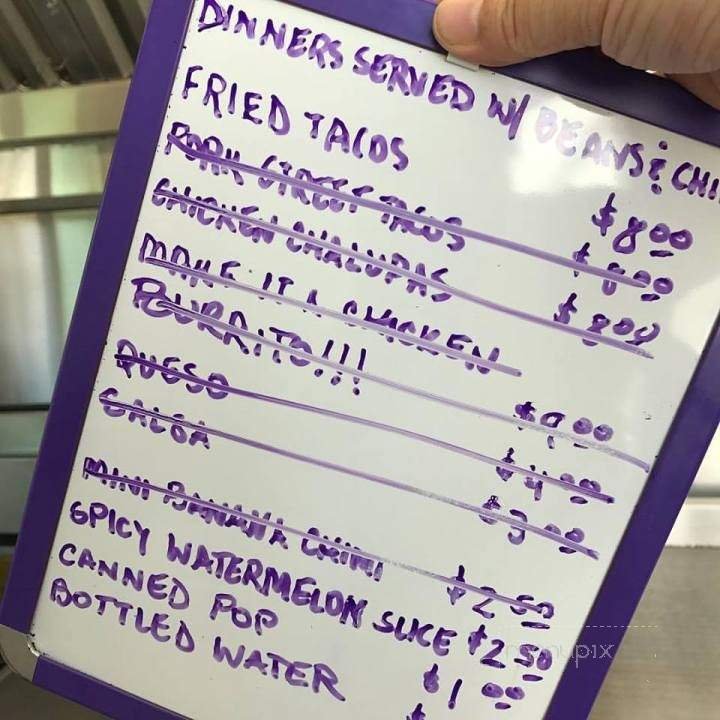 DINNERS SERVED W/ BEANS & CHI
FRIED TACOS $8.00
PORK STREET TACOS $8.00
CHICKEN CHALUPAS $8.00
MAKE IT A CHICKEN
BURRITO!!! $9.00
QUESO $4.00
SALSA $3.00
MINI BANANA CHIMI $2.50
SPICY WATERMELON SLICE $2.50
CANNED POP $1.00
BOTTLED WATER $
menupix